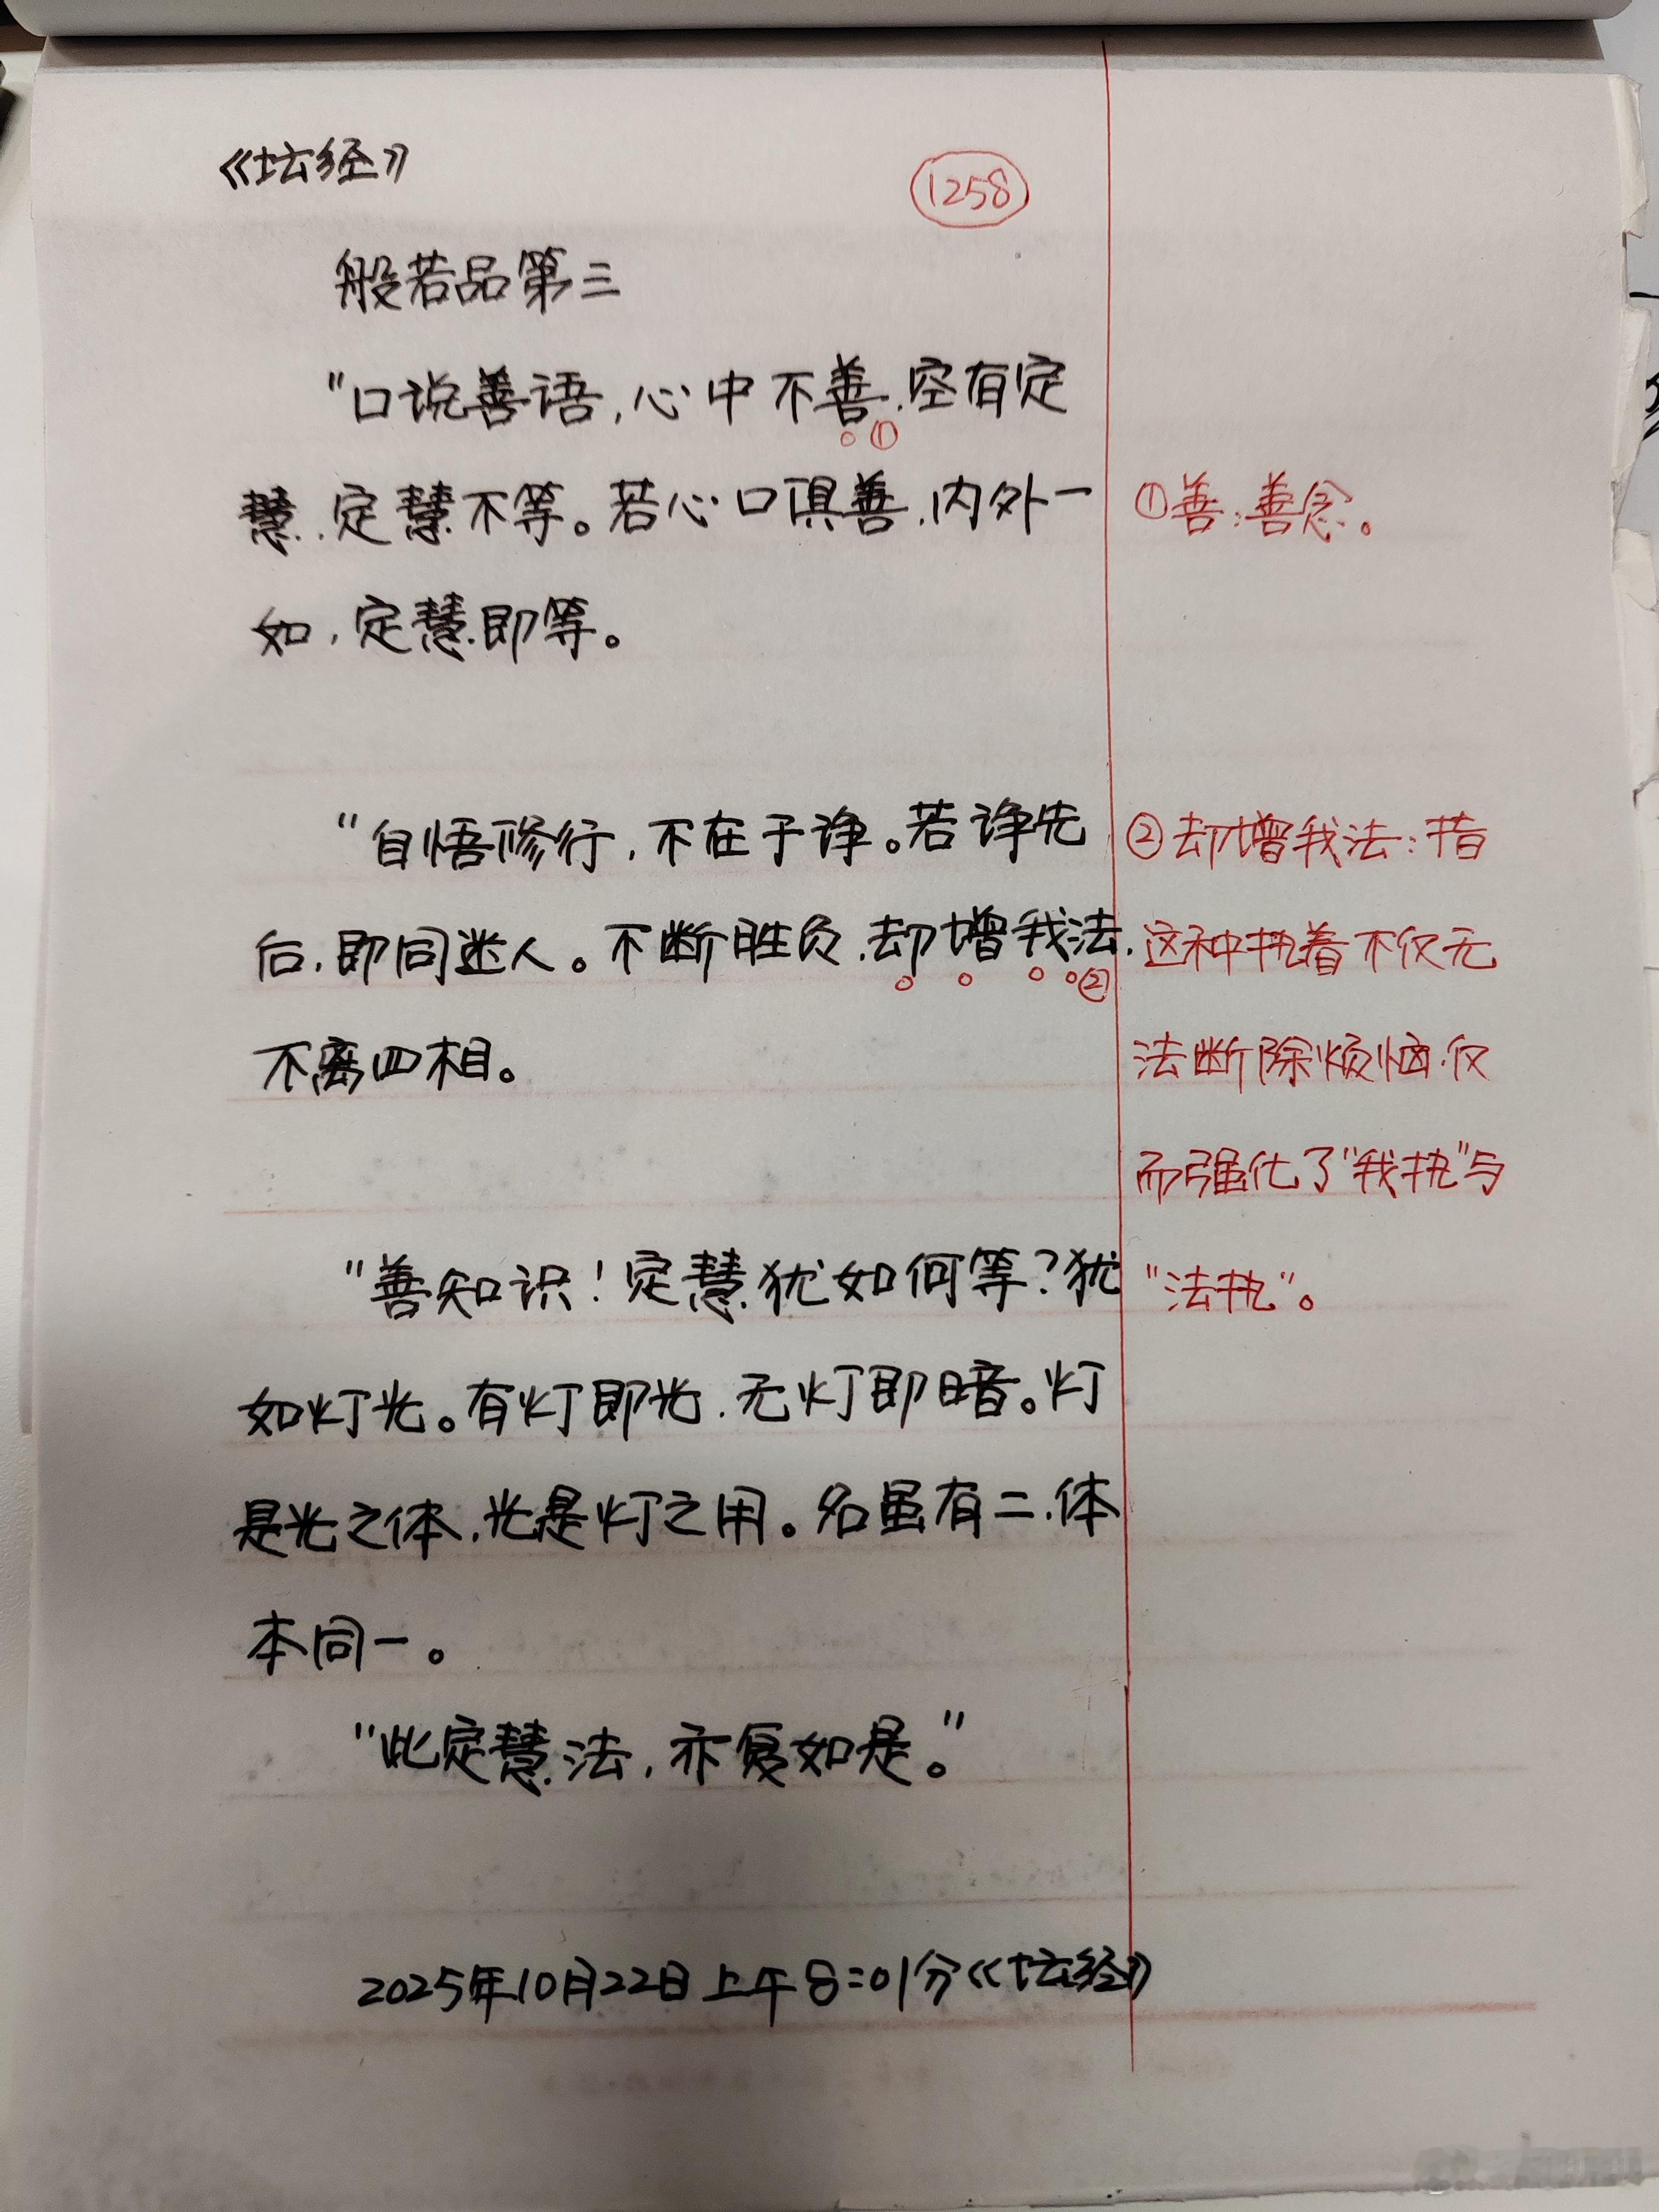 《坛经》
1258
般若品第三
"口说善语,心中不善.空有定
①
慧.定慧不等。若心口俱善.内外一
①善:善念。
如.定慧即等。
"自悟修行,不在于诤。若诤先
②却增我法:指
后.即同迷人。不断胜负.却增我法.
②
这种执着不仅无
不离四相。
法断除烦恼.仅
而强化了"我执"与
"善知识!定慧犹如何等?犹
"法执"。
如灯光。有灯即光.无灯即暗。灯
是光之体.光是灯之用。名虽有二.体
本同一。
"此定慧法,亦复如是。"
2025年10月22日上午8:01分《坛经》